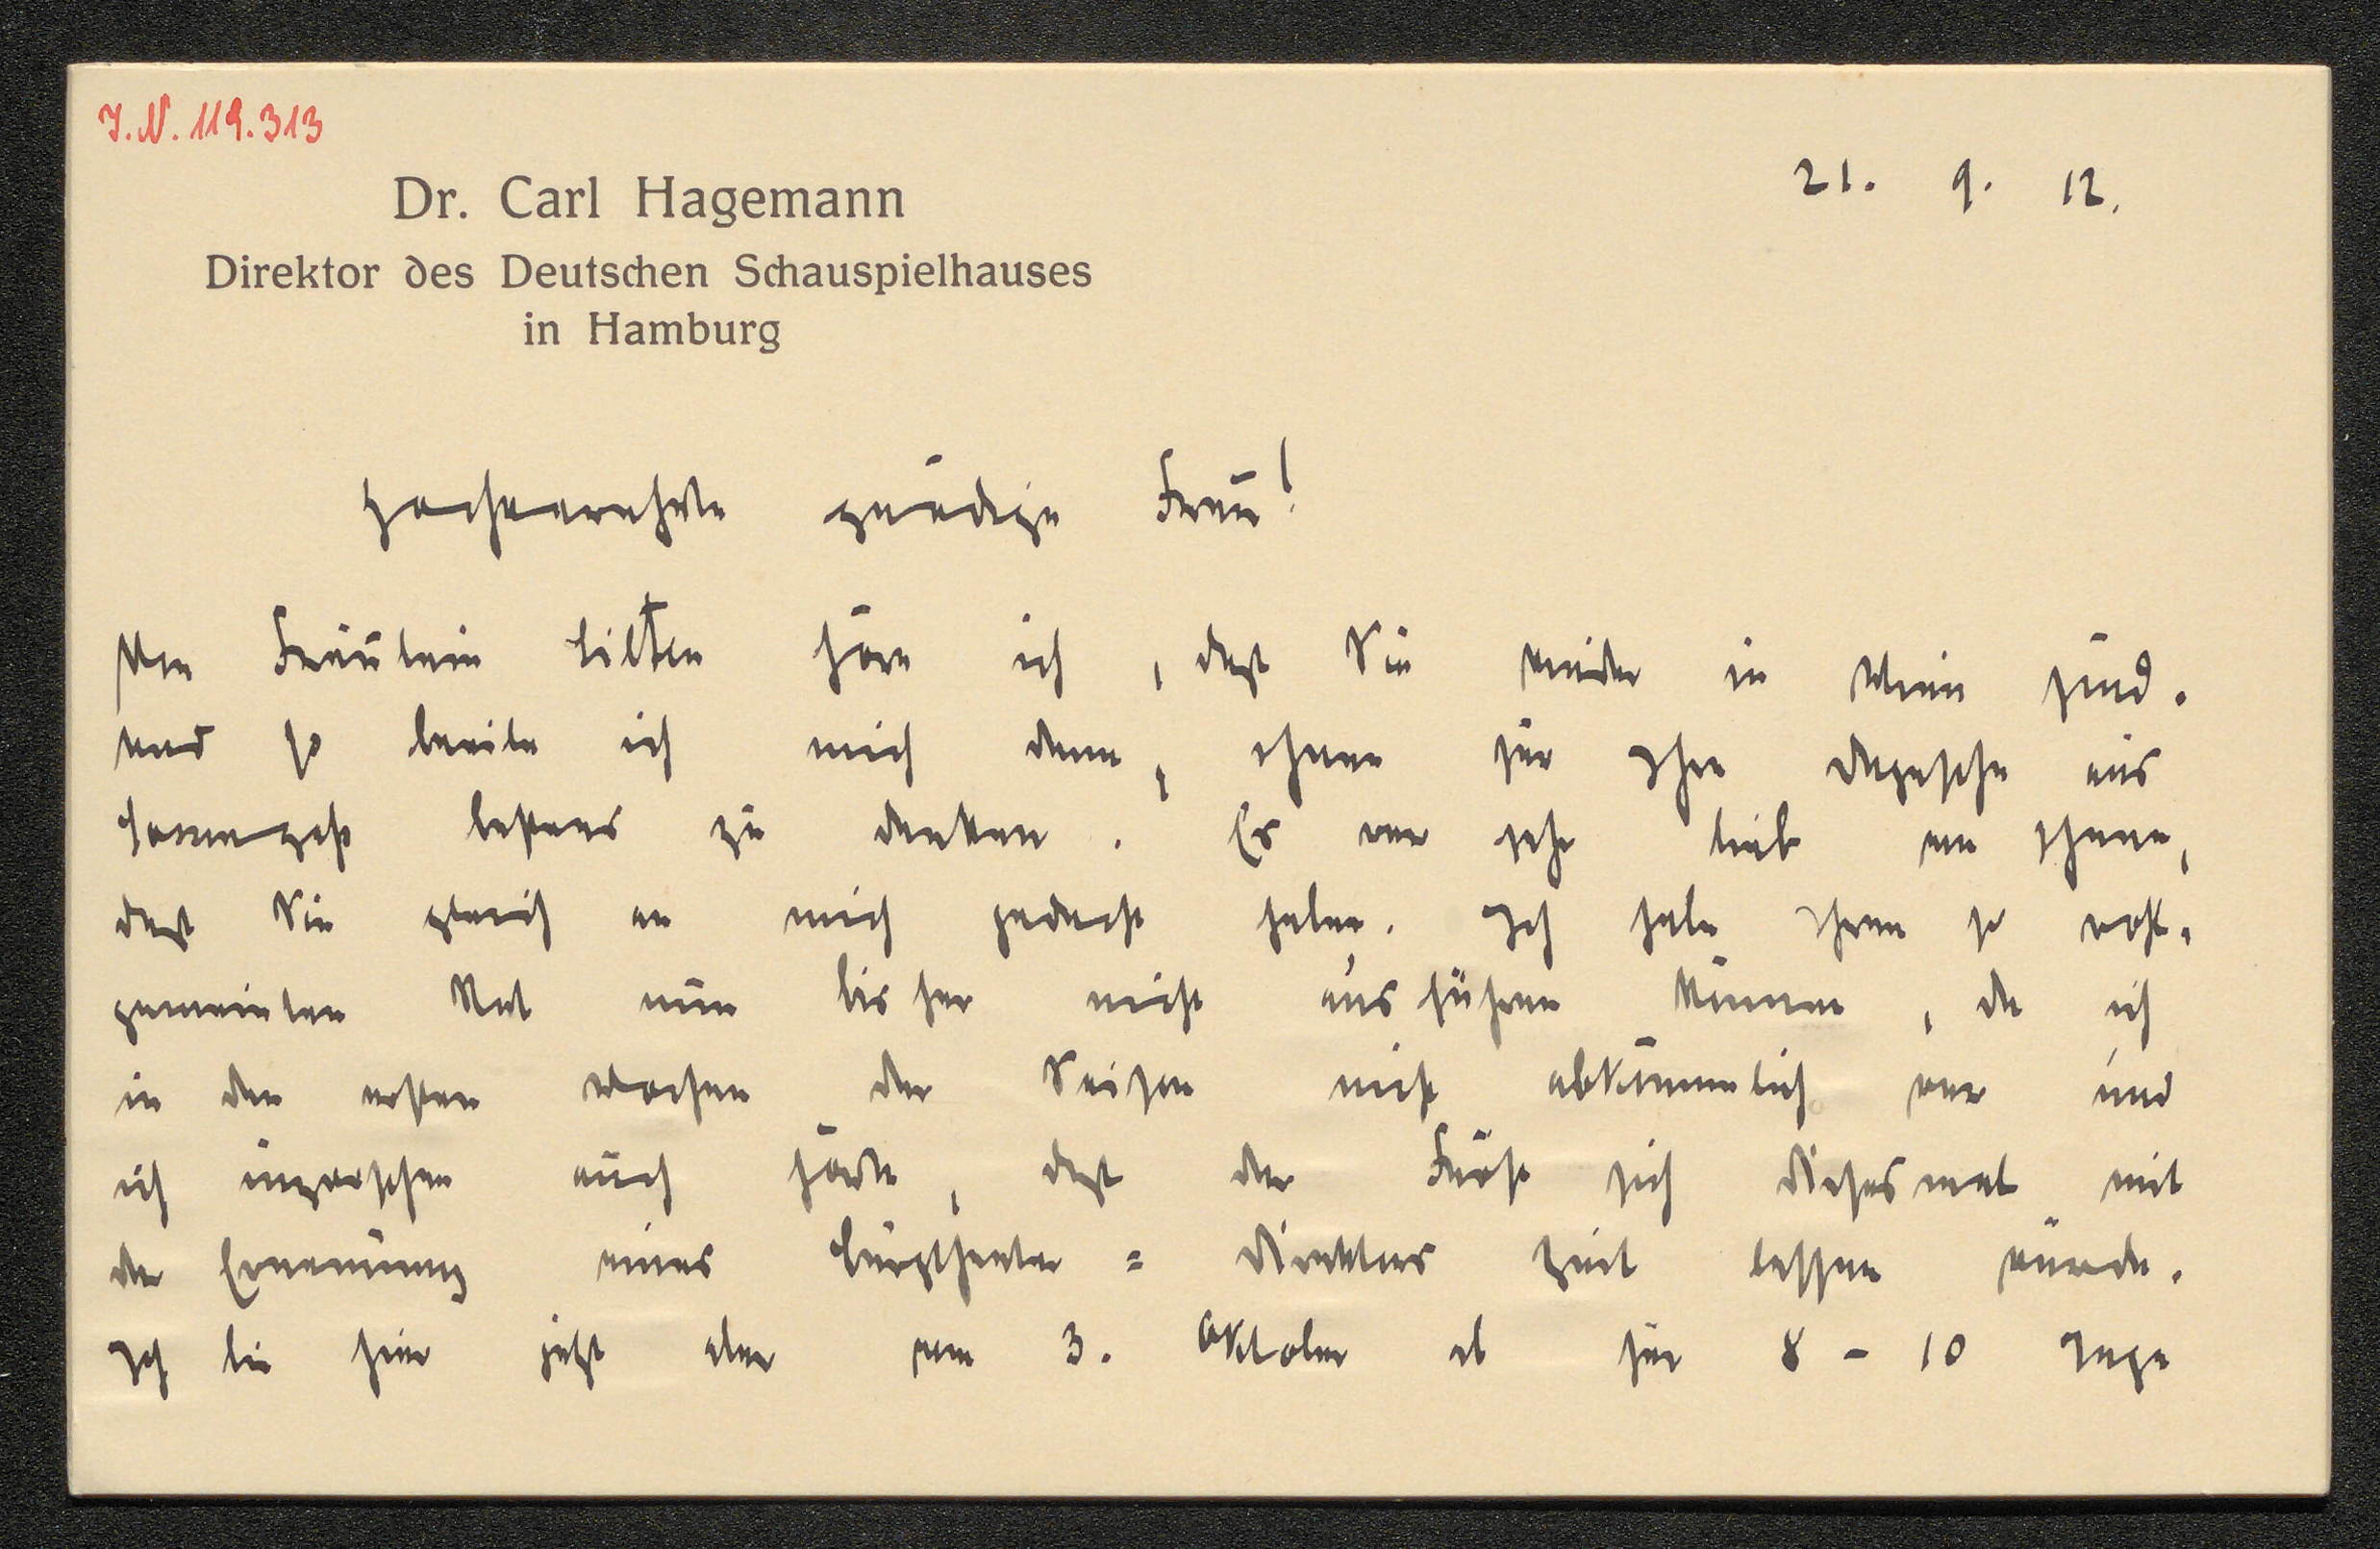 J.N. 119.313
21. 9. 12.
Dr. Carl Hagemann
Direktor des Deutschen Schauspielhauses
in Hamburg
Hochverehrte gnädige Frau!
Von Fräulein höre ich, dass Sie wieder in Wien sind.
und so beeile ich mich denn, Ihnen für Ihre Depesche aus
bestens zu danken. Es war sehr lieb von Ihnen,
dass Sie gleich an mich gedacht haben. Ich habe Ihren so wohl-
gemeinten Rat nun bisher nicht ausführen können, da ich
in den ersten Wochen der Saison nicht abkömmlich war und
ich inzwischen auch hörte, dass der Fürst sich diesesmal mit
der Ernennung eines Burgtheater-Direktors Zeit lassen würde.
Ich bin hier jetzt aber vom 3. Oktober ab für 8 - 10 Tage